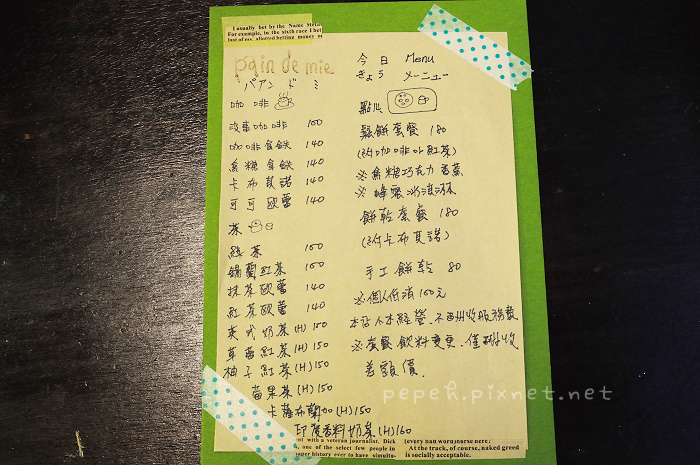 I usually bet by the Name Method.
For example, in the sixth race I bet
pain de mie
パアンドミ
咖啡
故事咖啡 100
咖啡拿鐵 140
焦糖拿鐵 140
卡布其諾 140
可可歐蕾 140
茶
綠茶 100
錫蘭紅茶 100
抹茶歐蕾 140
紅茶歐蕾 140
英式奶茶(H) 150
草莓紅茶(H) 150
柚子紅茶(H) 150
莓果茶(H) 150
卡薩布蘭加(H) 150
印度香料奶茶(H) 160
今日 Menu
きょう メーニュー
點心
鬆餅套餐 180
(附咖啡or紅茶)
※焦糖巧克力香蕉
※蜂蜜冰淇淋
餅乾套餐 180
(附卡布其諾)
手工餅乾 80
※個人低消100元
本店小本經營.不再另收服務費
※套餐飲料變更.僅酌收
差額價.
pepeh.pixnet.net
with a veteran journalist. Dick
one of the select few people in
history ever to have simulta-
At the track, of course, naked greed
is socially acceptable.